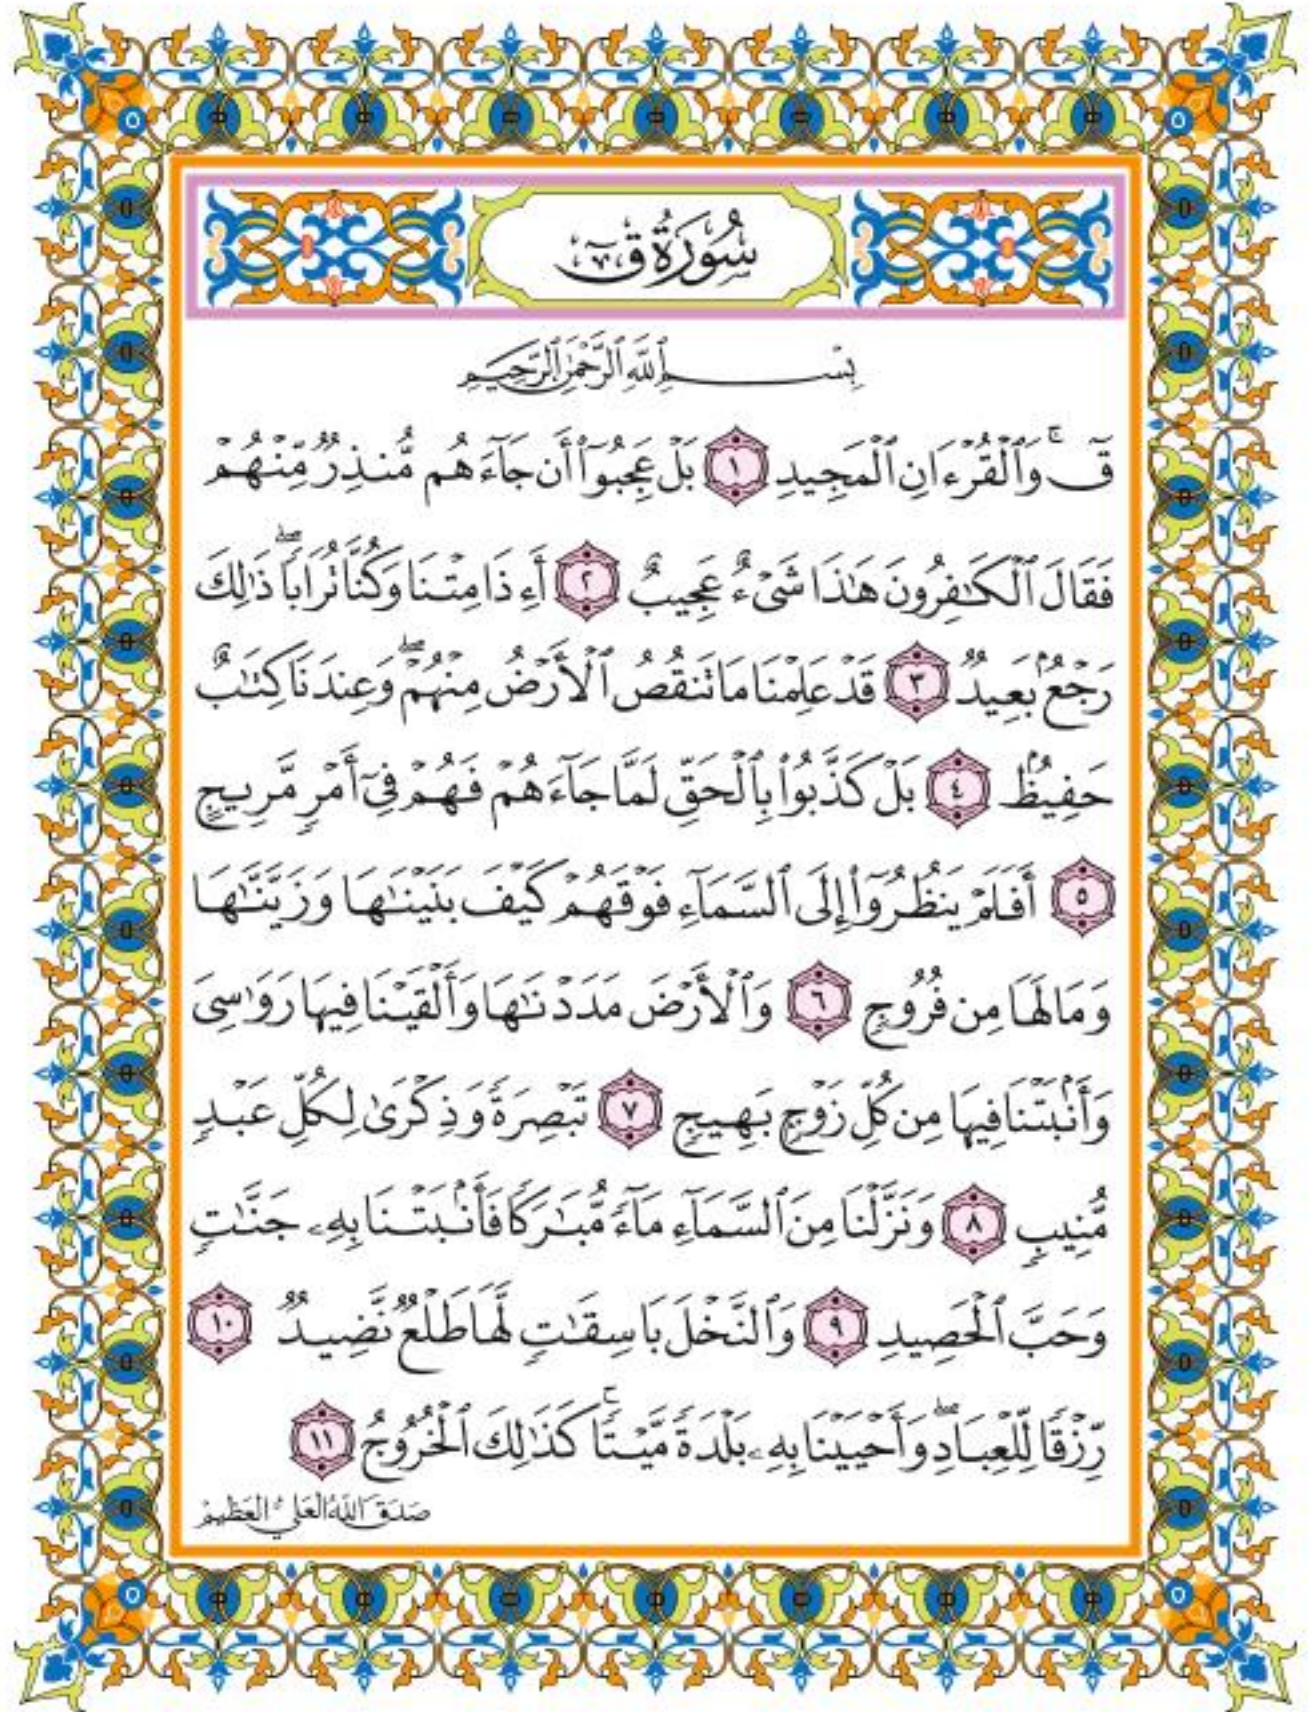 سُورَةُ قٓ
بِسْمِ ٱللَّهِ ٱلرَّحْمَٰنِ ٱلرَّحِيمِ
قٓ ۚ وَٱلْقُرْءَانِ ٱلْمَجِيدِ ١ بَلْ عَجِبُوٓا۟ أَن جَآءَهُم مُّنذِرٌ مِّنْهُمْ
فَقَالَ ٱلْكَٰفِرُونَ هَٰذَا شَىْءٌ عَجِيبٌ ٢ أَءِذَا مِتْنَا وَكُنَّا تُرَابًا ۖ ذَٰلِكَ
رَجْعٌۢ بَعِيدٌ ٣ قَدْ عَلِمْنَا مَا تَنقُصُ ٱلْأَرْضُ مِنْهُمْ ۖ وَعِندَنَا كِتَٰبٌ
حَفِيظٌۢ ٤ بَلْ كَذَّبُوا۟ بِٱلْحَقِّ لَمَّا جَآءَهُمْ فَهُمْ فِىٓ أَمْرٍ مَّرِيجٍ
٥ أَفَلَمْ يَنظُرُوٓا۟ إِلَى ٱلسَّمَآءِ فَوْقَهُمْ كَيْفَ بَنَيْنَٰهَا وَزَيَّنَّٰهَا
وَمَا لَهَا مِن فُرُوجٍ ٦ وَٱلْأَرْضَ مَدَدْنَٰهَا وَأَلْقَيْنَا فِيهَا رَوَٰسِىَ
وَأَنۢبَتْنَا فِيهَا مِن كُلِّ زَوْجٍۭ بَهِيجٍ ٧ تَبْصِرَةً وَذِكْرَىٰ لِكُلِّ عَبْدٍ
مُّنِيبٍ ٨ وَنَزَّلْنَا مِنَ ٱلسَّمَآءِ مَآءً مُّبَٰرَكًا فَأَنۢبَتْنَا بِهِۦ جَنَّٰتٍ
وَحَبَّ ٱلْحَصِيدِ ٩ وَٱلنَّخْلَ بَاسِقَٰتٍ لَّهَا طَلْعٌ نَّضِيدٌ ١٠
رِّزْقًا لِّلْعِبَادِ ۖ وَأَحْيَيْنَا بِهِۦ بَلْدَةً مَّيْتًا ۚ كَذَٰلِكَ ٱلْخُرُوجُ ١١
صَدَقَ اللَّهُ العَلِيُّ العَظِيمْ